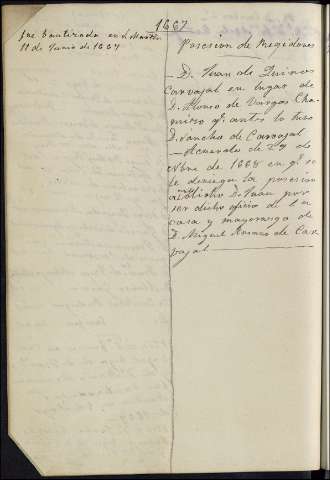 1667
fue bautizada en S. Martin
11 de Junio de 1667
Posesion de Regidores
— D. Juan de Quiros
Carvajal en lugar de
D. Alonso de Vargas Cha-
miro q.e antes lo tuvo
D. Sancho de Carvajal
— Acuerdo de 29 de
de 1668 en q.e se
le deniega la posesion
a dicho D. Juan por
ser dicho oficio de la
casa y mayorazgo de
D. Miguel de Car-
vajal